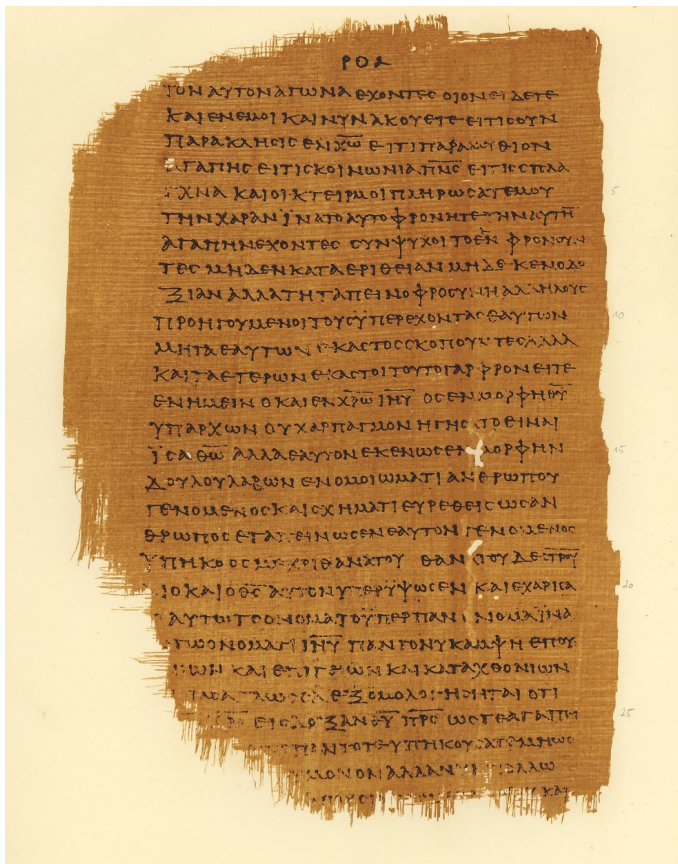 ΡΟΑ
ΪΟΝ ΑΥΤΟΝ ΑΓΩΝΑ ΕΧΟΝΤΕΣ ΟΙΟΝ ΕΙΔΕΤΕ
ΚΑΙ ΕΝ ΕΜΟΙ ΚΑΙ ΝΥΝ ΑΚΟΥΕΤΕ ΕΙ ΤΙΣ ΟΥΝ
ΠΑΡΑΚΛΗΣΙΣ ΕΝ Χ̅Ω̅ ΕΙ ΤΙ ΠΑΡΑΜΥΘΙΟΝ
ΑΓΑΠΗΣ ΕΙ ΤΙΣ ΚΟΙΝΩΝΙΑ Π̅Ν̅Σ̅ ΕΙ ΤΙΣ ΣΠΛΑ
ΓΧΝΑ ΚΑΙ ΟΙΚΤΕΙΡΜΟΙ ΠΛΗΡΩΣΑΤΕ ΜΟΥ
ΤΗΝ ΧΑΡΑΝ ΪΝΑ ΤΟ ΑΥΤΟ ΦΡΟΝΗΤΕ ΤΗΝ ΑΥΤΗ̅
ΑΓΑΠΗΝ ΕΧΟΝΤΕΣ ΣΥΝΨΥΧΟΙ ΤΟ ΕΝ ΦΡΟΝΟΥΝ
ΤΕΣ ΜΗΔΕΝ ΚΑΤΑ ΕΡΙΘΕΙΑΝ ΜΗΔΕ ΚΕΝΟΔΟ
ΞΙΑΝ ΑΛΛΑ ΤΗ ΤΑΠΕΙΝΟΦΡΟΣΥΝΗ ΑΛΛΗΛΟΥΣ
ΠΡΟΗΓΟΥΜΕΝΟΙ ΤΟΥΣ ΫΠΕΡΕΧΟΝΤΑΣ ΕΑΥΤΩΝ
ΜΗ ΤΑ ΕΑΥΤΩΝ ΕΚΑΣΤΟΣ ΣΚΟΠΟΥΝΤΕΣ ΑΛΛΑ
ΚΑΙ ΤΑ ΕΤΕΡΩΝ ΕΚΑΣΤΟΙ ΤΟΥΤΟ ΓΑΡ ΦΡΟΝΕΙΤΕ
ΕΝ ΗΜΕΙΝ Ο ΚΑΙ ΕΝ Χ̅Ρ̅Ω̅ Ι̅Η̅Υ̅ ΟΣ ΕΝ ΜΟΡΦΗ Θ̅Υ̅
ΥΠΑΡΧΩΝ ΟΥΧ ΑΡΠΑΓΜΟΝ ΗΓΗΣΑΤΟ ΕΙΝΑΙ
ΪΣΑ Θ̅Ω̅ ΑΛΛΑ ΕΑΥΤΟΝ ΕΚΕΝΩΣΕΝ ΜΟΡΦΗΝ
ΔΟΥΛΟΥ ΛΑΒΩΝ ΕΝ ΟΜΟΙΩΜΑΤΙ ΑΝΘΡΩΠΟΥ
ΓΕΝΟΜΕΝΟΣ ΚΑΙ ΣΧΗΜΑΤΙ ΕΥΡΕΘΕΙΣ ΩΣ ΑΝ
ΘΡΩΠΟΣ ΕΤΑΠΕΙΝΩΣΕΝ ΕΑΥΤΟΝ ΓΕΝΟΜΕΝΟΣ
ΥΠΗΚΟΟΣ ΜΕΧΡΙ ΘΑΝΑΤΟΥ ΘΑΝΑΤΟΥ ΔΕ Σ̅Τ̅Ρ̅Ο̅Υ̅
ΔΙΟ ΚΑΙ Ο Θ̅Σ̅ ΑΥΤΟΝ ΥΠΕΡΥΨΩΣΕΝ ΚΑΙ ΕΧΑΡΙΣΑ
ΑΥΤΩ ΤΟ ΟΝΟΜΑ ΤΟ ΫΠΕΡ ΠΑΝ ΟΝΟΜΑ ΪΝΑ
ΤΩ ΟΝΟΜΑΤΙ Ι̅Η̅Υ̅ ΠΑΝ ΓΟΝΥ ΚΑΜΨΗ ΕΠΟΥ
ΝΙΩΝ ΚΑΙ ΕΠΙΓΕΙΩΝ ΚΑΙ ΚΑΤΑΧΘΟΝΙΩΝ
ΠΑΣΑ ΓΛΩΣΣΑ ΕΞΟΜΟΛΟΓΗΣΗΤΑΙ ΟΤΙ
Χ̅Ρ̅Σ̅ ΕΙΣ ΔΟΞΑΝ Θ̅Υ̅ Π̅Ρ̅Σ̅ ΩΣΤΕ ΑΓΑΠΗ
ΠΑΝΤΟΤΕ ΥΠΗΚΟΥΣΑΤΕ ΜΗ ΩΣ
ΜΟΝΟΝ ΑΛΛΑ ΝΥΝ ΠΟΛΛΩ
ΚΑΙ
5
10
15
20
25